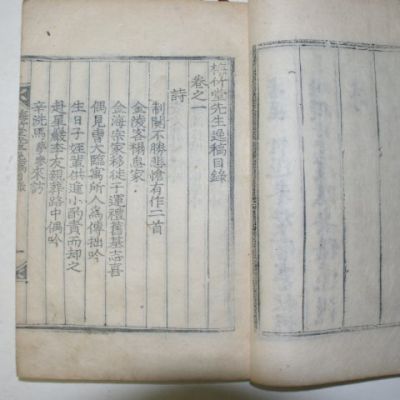 梅竹堂先生逸稿目錄
卷之一
詩
制闋不勝悲愴有作二首
金陵客榻思家
金海宗家移徙子運禮舊基志喜
偶見曺大臨寓所人寫傳拙吟
生日子姪輩供進小酌責而却之
赴星巖李友親葬路中偶吟
辛洗馬夢參來訪